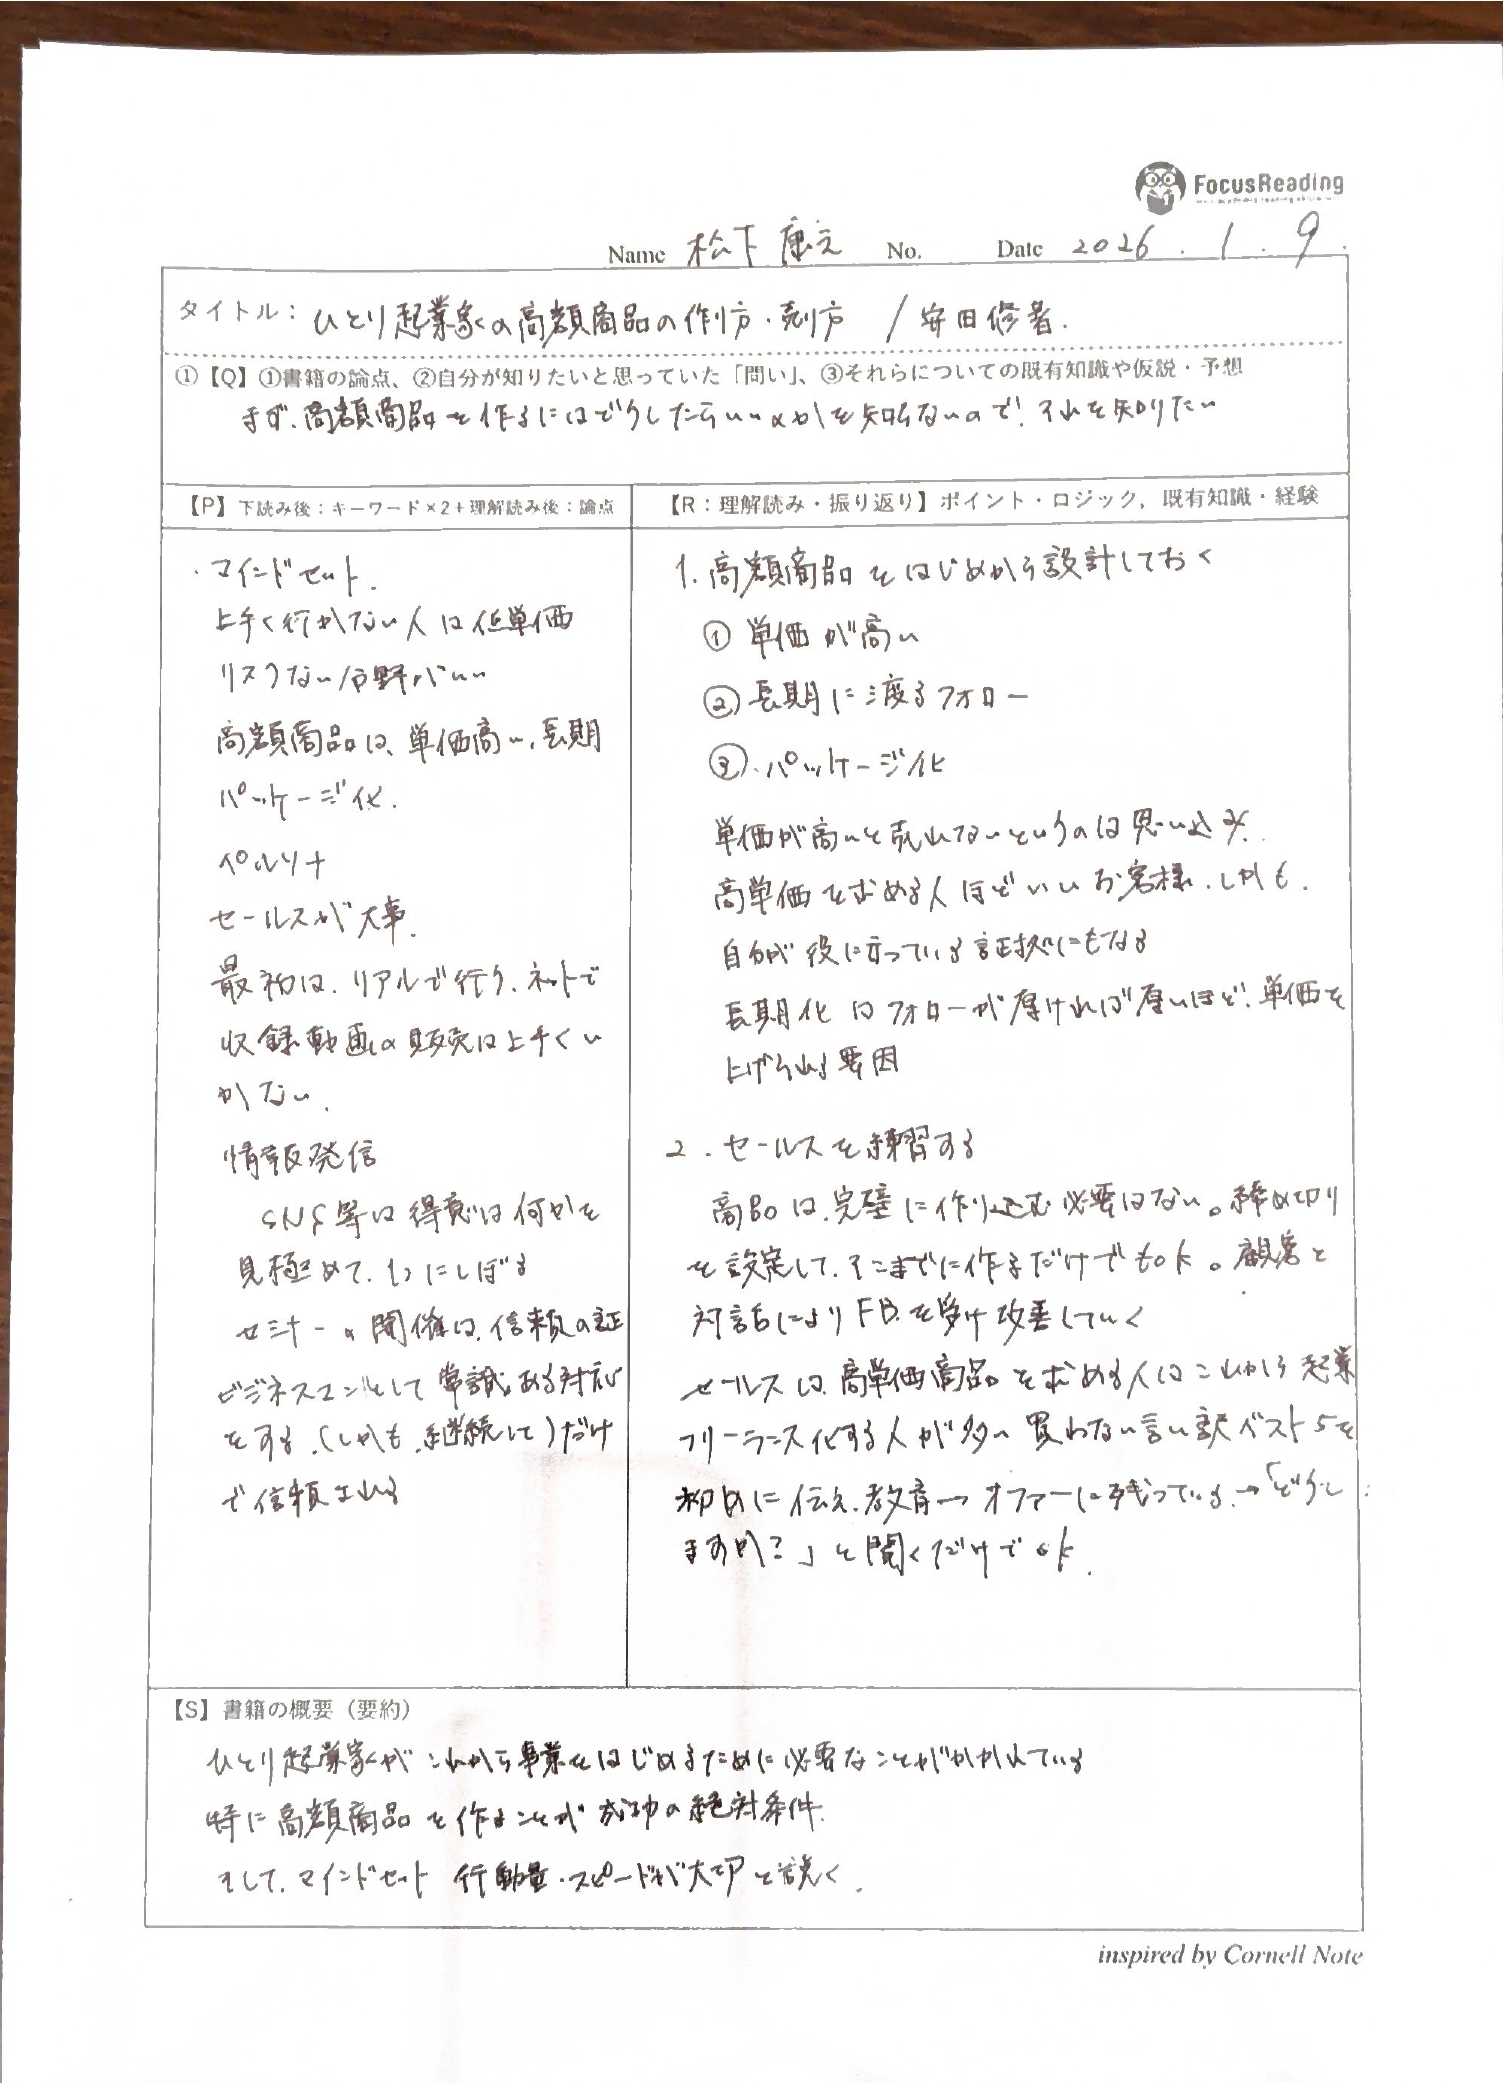 FocusReading
Name 松下 康之 No. Date 2026.1.9.
タイトル：ひとり起業家の高額商品の作り方・売り方 / 安田修著.
①【Q】①書籍の論点、②自分が知りたいと思っていた「問い」、③それらについての既有知識や仮説・予想
まず、高額商品を作るにはどうしたらいいのかを知らないので、それを知りたい
【P】下読み後：キーワード×2＋理解読み後：論点
・マインドセット.
上手く行かない人は低単価
リスクない分野がいい
高額商品は、単価高い、長期
パッケージ化.
ペルソナ
セールスが大事.
最初は、リアルで行う、ネットで
収録動画の販売は上手くい
かない.
情報発信
SNS等は得意は何かを
見極めて、1つにしぼる
セミナーの開催は、信頼の証
ビジネスマンとして常識ある対応
をする、(しかも、継続して)だけ
で信頼される
【R：理解読み・振り返り】ポイント・ロジック，既有知識・経験
1. 高額商品をはじめから設計しておく
① 単価が高い
② 長期に渡るフォロー
③. パッケージ化
単価が高いと売れないというのは思い込み.
高単価を求める人ほどいいお客様、しかも、
自分が役に立っている証拠にもなる
長期化はフォローが厚ければ厚いほど、単価を
上げられる要因
2. セールスを練習する
商品は、完璧に作り込む必要はない。締め切り
を設定して、そこまでに作るだけでもok。顧客と
対話によりFBを受け改善していく
セールスは、高単価商品を求める人はこれから起業
フリーランス化する人が多い 買わない言い訳ベスト5を
初めに伝え、教育→オファーに残っている.→「どうし
ますか?」と聞くだけでok.
【S】書籍の概要（要約）
ひとり起業家がこれから事業をはじめるために必要なことがかかれている
特に高額商品を作ることが成功の絶対条件.
そして、マインドセット 行動量・スピードが大切と説く.
inspired by Cornell Note